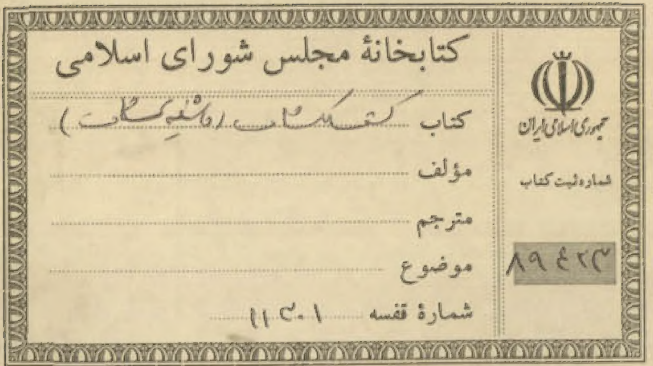 کتابخانهٔ مجلس شورای اسلامی
کتاب
مؤلف
مترجم
موضوع
شمارهٔ قفسه ۱۱۳۰۱
جمهوری اسلامی ایران
شماره ثبت کتاب
۸۹۴۲۳